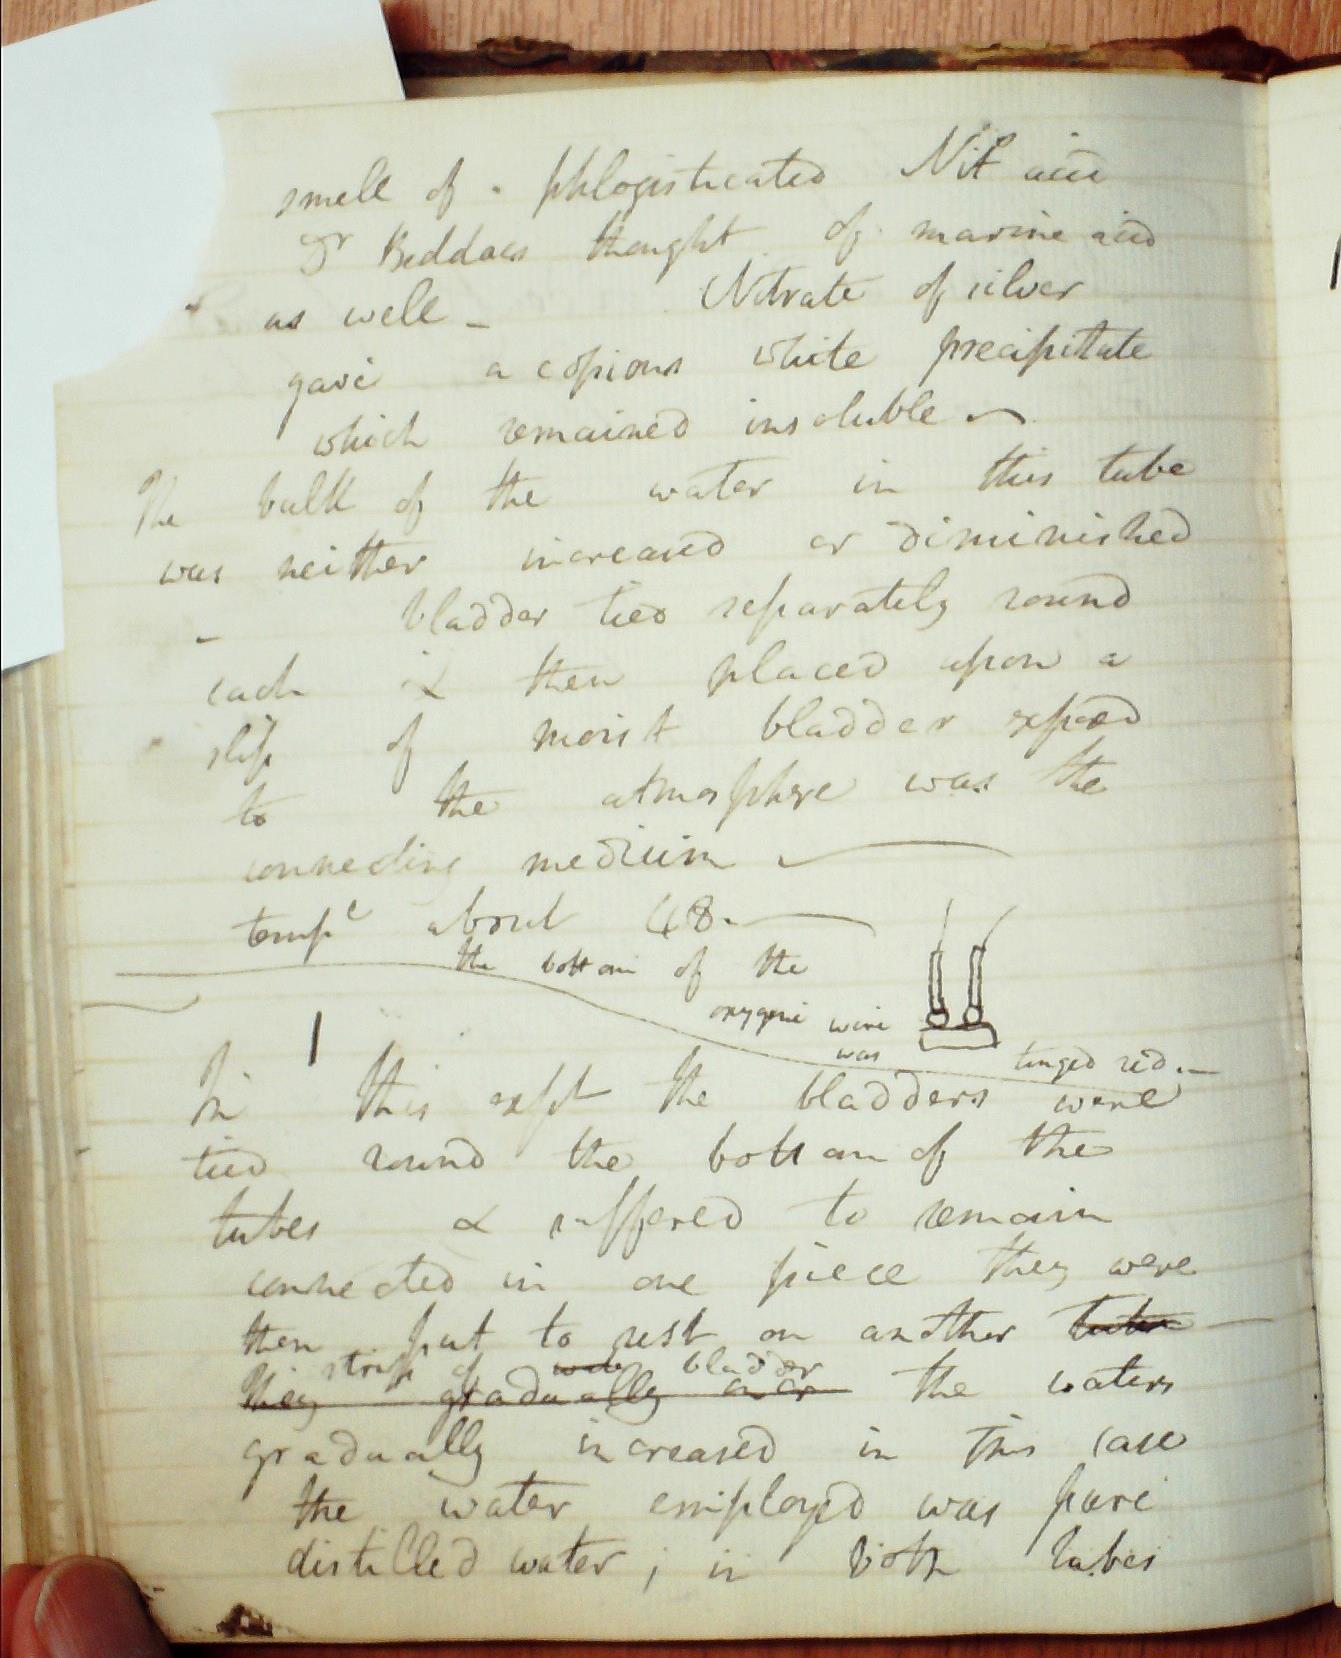 smell of - phlogisticated Nit acid
Dr Beddoes thought of marine acid
as well - Nitrate of silver
gave a copious white precipitate
which remained insoluble -
The bulk of the water in this tube
was neither increased or diminished
- bladder tied separately round
each & then placed upon a
slip of moist bladder exposed
to the atmosphere was the
connecting medium -
tempe about 48. -
the bottom of the
oxygene wire
was tinged red. -
1
In this expt the bladders were
tied round the bottom of the
tubes & suffered to remain
connected in one piece they were
then put to rest on another tube
strip of wet bladder
they gradually over the waters
gradually increased in this case
the water employed was pure
distilled water; in both tubes